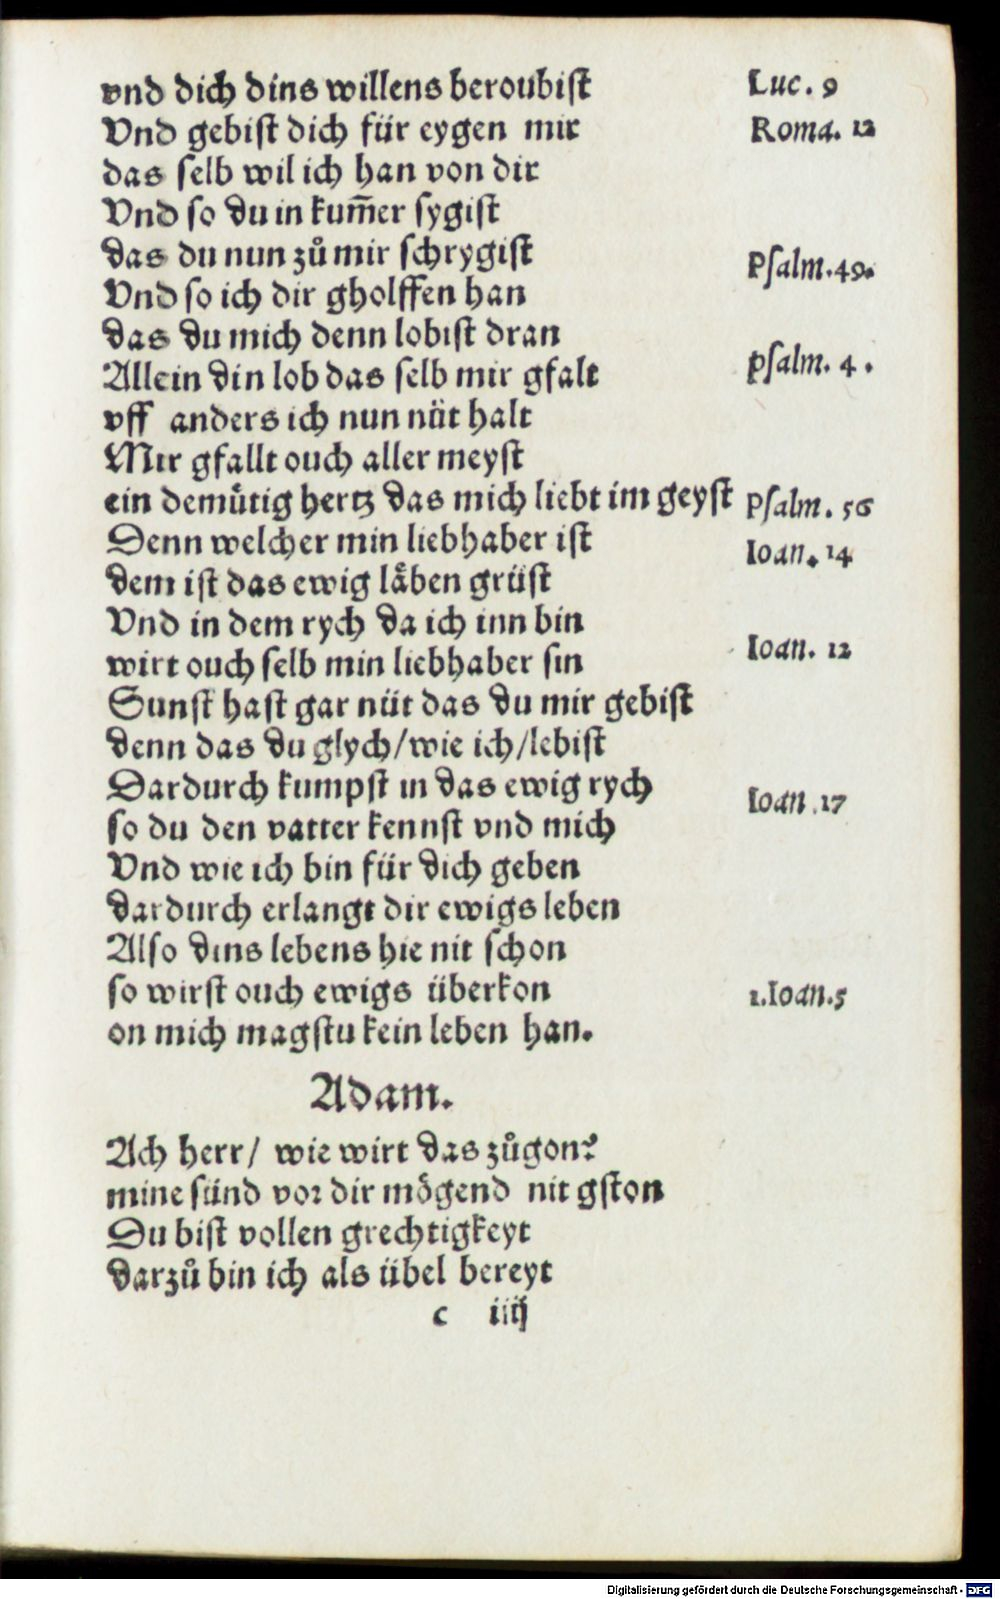 vnd dich dins willens beroubist
Luc. 9
Vnd gebist dich für eygen mir
Roma. 12
das selb wil ich han von dir
Vnd so du in kum̄er sygist
das du nun zů mir schrygist
Psalm. 49.
Vnd so ich dir gholffen han
das du mich denn lobist dran
Allein din lob das selb mir gfalt
psalm. 4.
vff anders ich nun nüt halt
Mir gfallt ouch aller meyst
ein demütig hertz das mich liebt im geyst
Psalm. 56
Denn welcher min liebhaber ist
Ioan. 14
dem ist das ewig låben grüst
Vnd in dem rych da ich inn bin
wirt ouch selb min liebhaber sin
Ioan. 12
Sunst hast gar nüt das du mir gebist
denn das du glych/wie ich/lebist
Dardurch kumpst in das ewig rych
Ioan .17
so du den vatter kennst vnd mich
Vnd wie ich bin für dich geben
dardurch erlangt dir ewigs leben
Also dins lebens hie nit schon
so wirst ouch ewigs überkon
1.Ioan.5
on mich magstu kein leben han.
Adam.
Ach herr/ wie wirt das zůgon?
mine sünd vor dir mögend nit gston
Du bist vollen grechtigkeyt
darzů bin ich als übel bereyt
c iiij
Digitalisierung gefördert durch die Deutsche Forschungsgemeinschaft - DFG